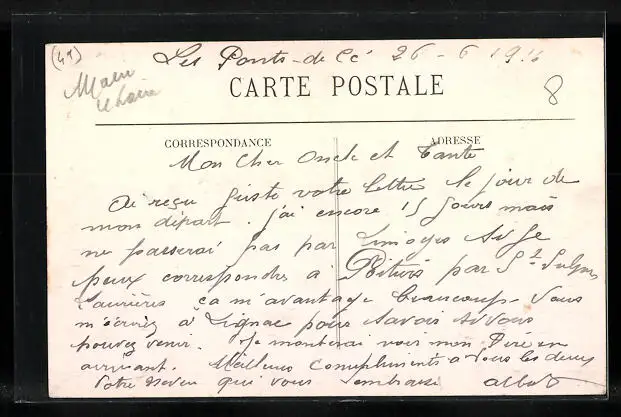 (49)
Maine
et Loire
Les Ponts-de Cé 26-6 19
8
CARTE POSTALE
CORRESPONDANCE
ADRESSE
Mon Cher Oncle et Tante
Ai reçu juste votre lettre le jour de
mon départ. j'ai encore 15 jours mais
ne passerai pas par Limoges si je
peux correspondre à Poitiers par St Sulpice
Laurières ça m'avantage beaucoup. Vous
m'écrirez à Lignac pour savoir si vous
pouvez venir. Je monterai voir mon Père en
arrivant. Meilleurs compliments à vous les deux
Votre neveu qui vous embrasse